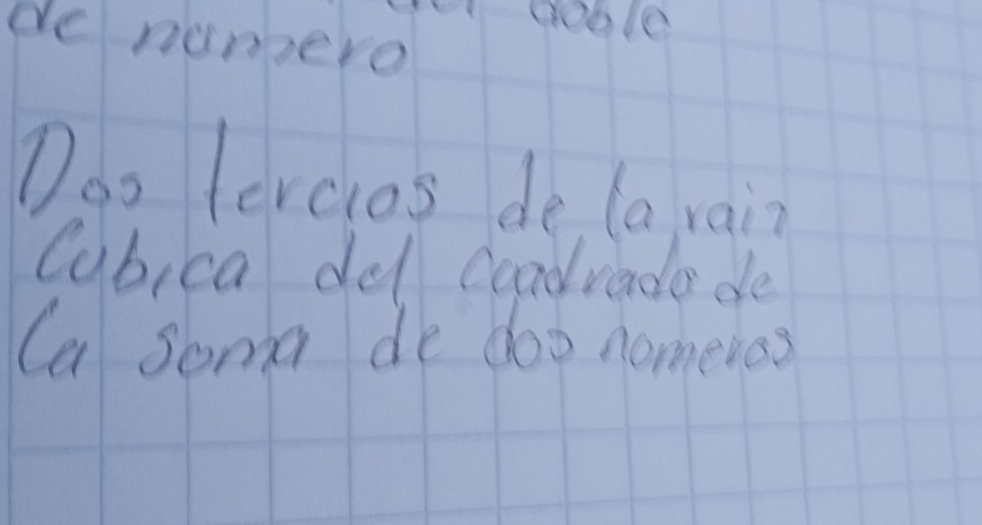 doble
de numero
Dos tercios de la raiz
Cubica del Cuadrado de
la suma de dos numeros